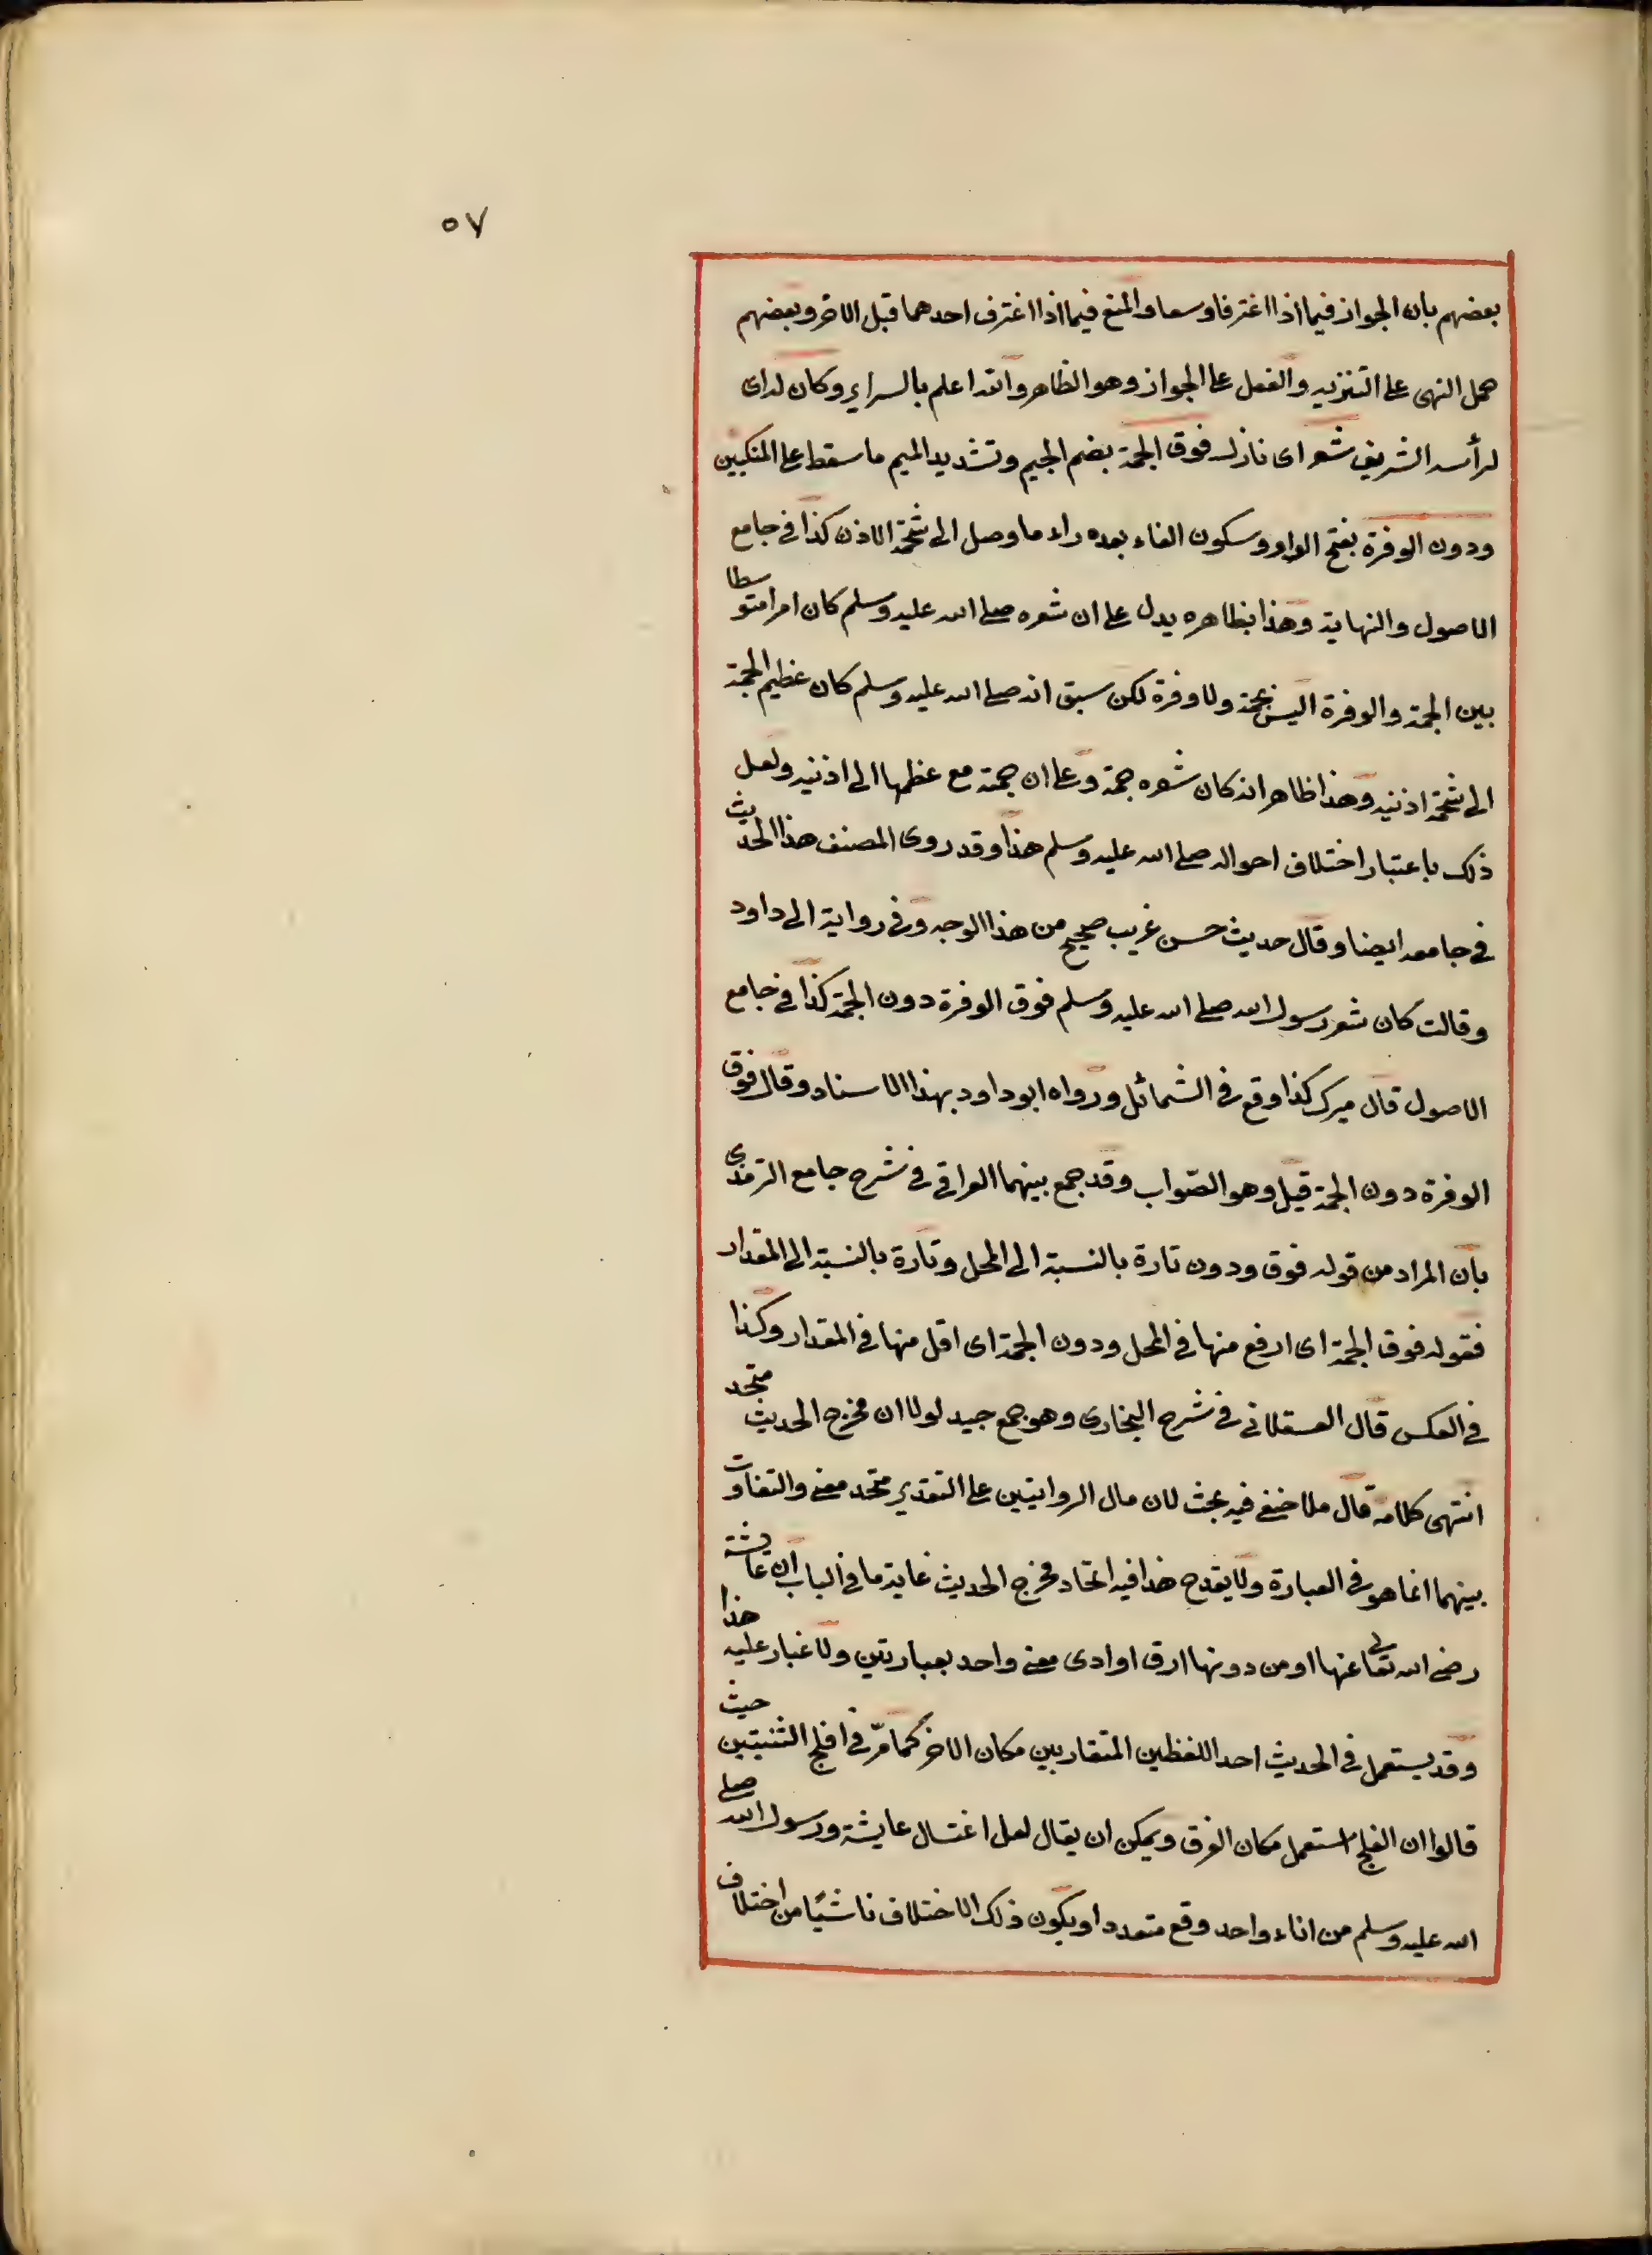 ٥٧
بعضهم بأن الجواز فيما اذا اغترفا وسعا والمنع فيما اذا اغترف احدهما قبل الاخر وبعضهم
حمل النهى على التنزيه والفعل على الجواز وهو الظاهر والله اعلم بالسراير وكان له اى
لرأسه الشريف شعر اى نازل فوق الجمة بضم الجيم وتشديد الميم ما سقط على المنكبين
ودون الوفرة بفتح الواو وسكون الفاء بعده راء ما وصل الى شحمة الاذن كذا فى جامع
الاصول والنهاية وهذا بظاهره يدل على ان شعره صلى الله عليه وسلم كان امرا متوسطا
بين الجمة والوفرة اليس بجمة ولا وفرة لكن سبق انه صلى الله عليه وسلم كان عظيم الجمة
الى شحمة اذنيه وهذا ظاهر انه كان شعره جمة وعلى ان جمته مع عظمها الى اذنيه ولعل
ذلك باعتبار اختلاف احواله صلى الله عليه وسلم هذا وقد روى المصنف هذا الحديث
فى جامعه ايضا وقال حديث حسن غريب صحيح من هذا الوجه وفى رواية الى داود
وقالت كان شعر رسول الله صلى الله عليه وسلم فوق الوفرة دون الجمة كذا فى جامع
الاصول قال ميرك كذا وقع فى الشمائل ورواه ابو داود بهذا الاسناد وقال فوق
الوفرة دون الجمة قيل وهو الصّواب وقد جمع بينهما العراقى فى شرح جامع الترمذى
بأن المراد من قوله فوق ودون تارة بالنسبة الى المحل وتارة بالنسبة الى المقدار
فقوله فوق الجمة اى ارفع منها فى المحل ودون الجمة اى اقل منها فى المقدار وكذا
فى العكس قال العسقلانى فى شرح البخارى وهو جمع جيد لولا ان مخرج الحديث متحد
انتهى كلامه قال ملا حنفى فيه بحث لان مال الروايتين على التقدير متحد معنى والتفاوت
بينهما انما هو فى العبارة ولا يقدح هذا فيه اتحاد مخرج الحديث غاية ما فى الباب ان عايشة
رضى الله تعالى عنها او من دونها ارق او ادى معنى واحد بعبارتين ولا غبار عليه هذا
وقد يستعمل فى الحديث احد اللفظين المتقاربين مكان الاخر كما مرّ فى افلج الثنيتين حيث
قالوا ان الفلج استعمل مكان الفرق ويمكن ان يقال لعل اغتسال عايشة ورسول الله صلى
الله عليه وسلم من اناء واحد وقع متعددا ويكون ذلك الاختلاف ناشئًا من اختلاف